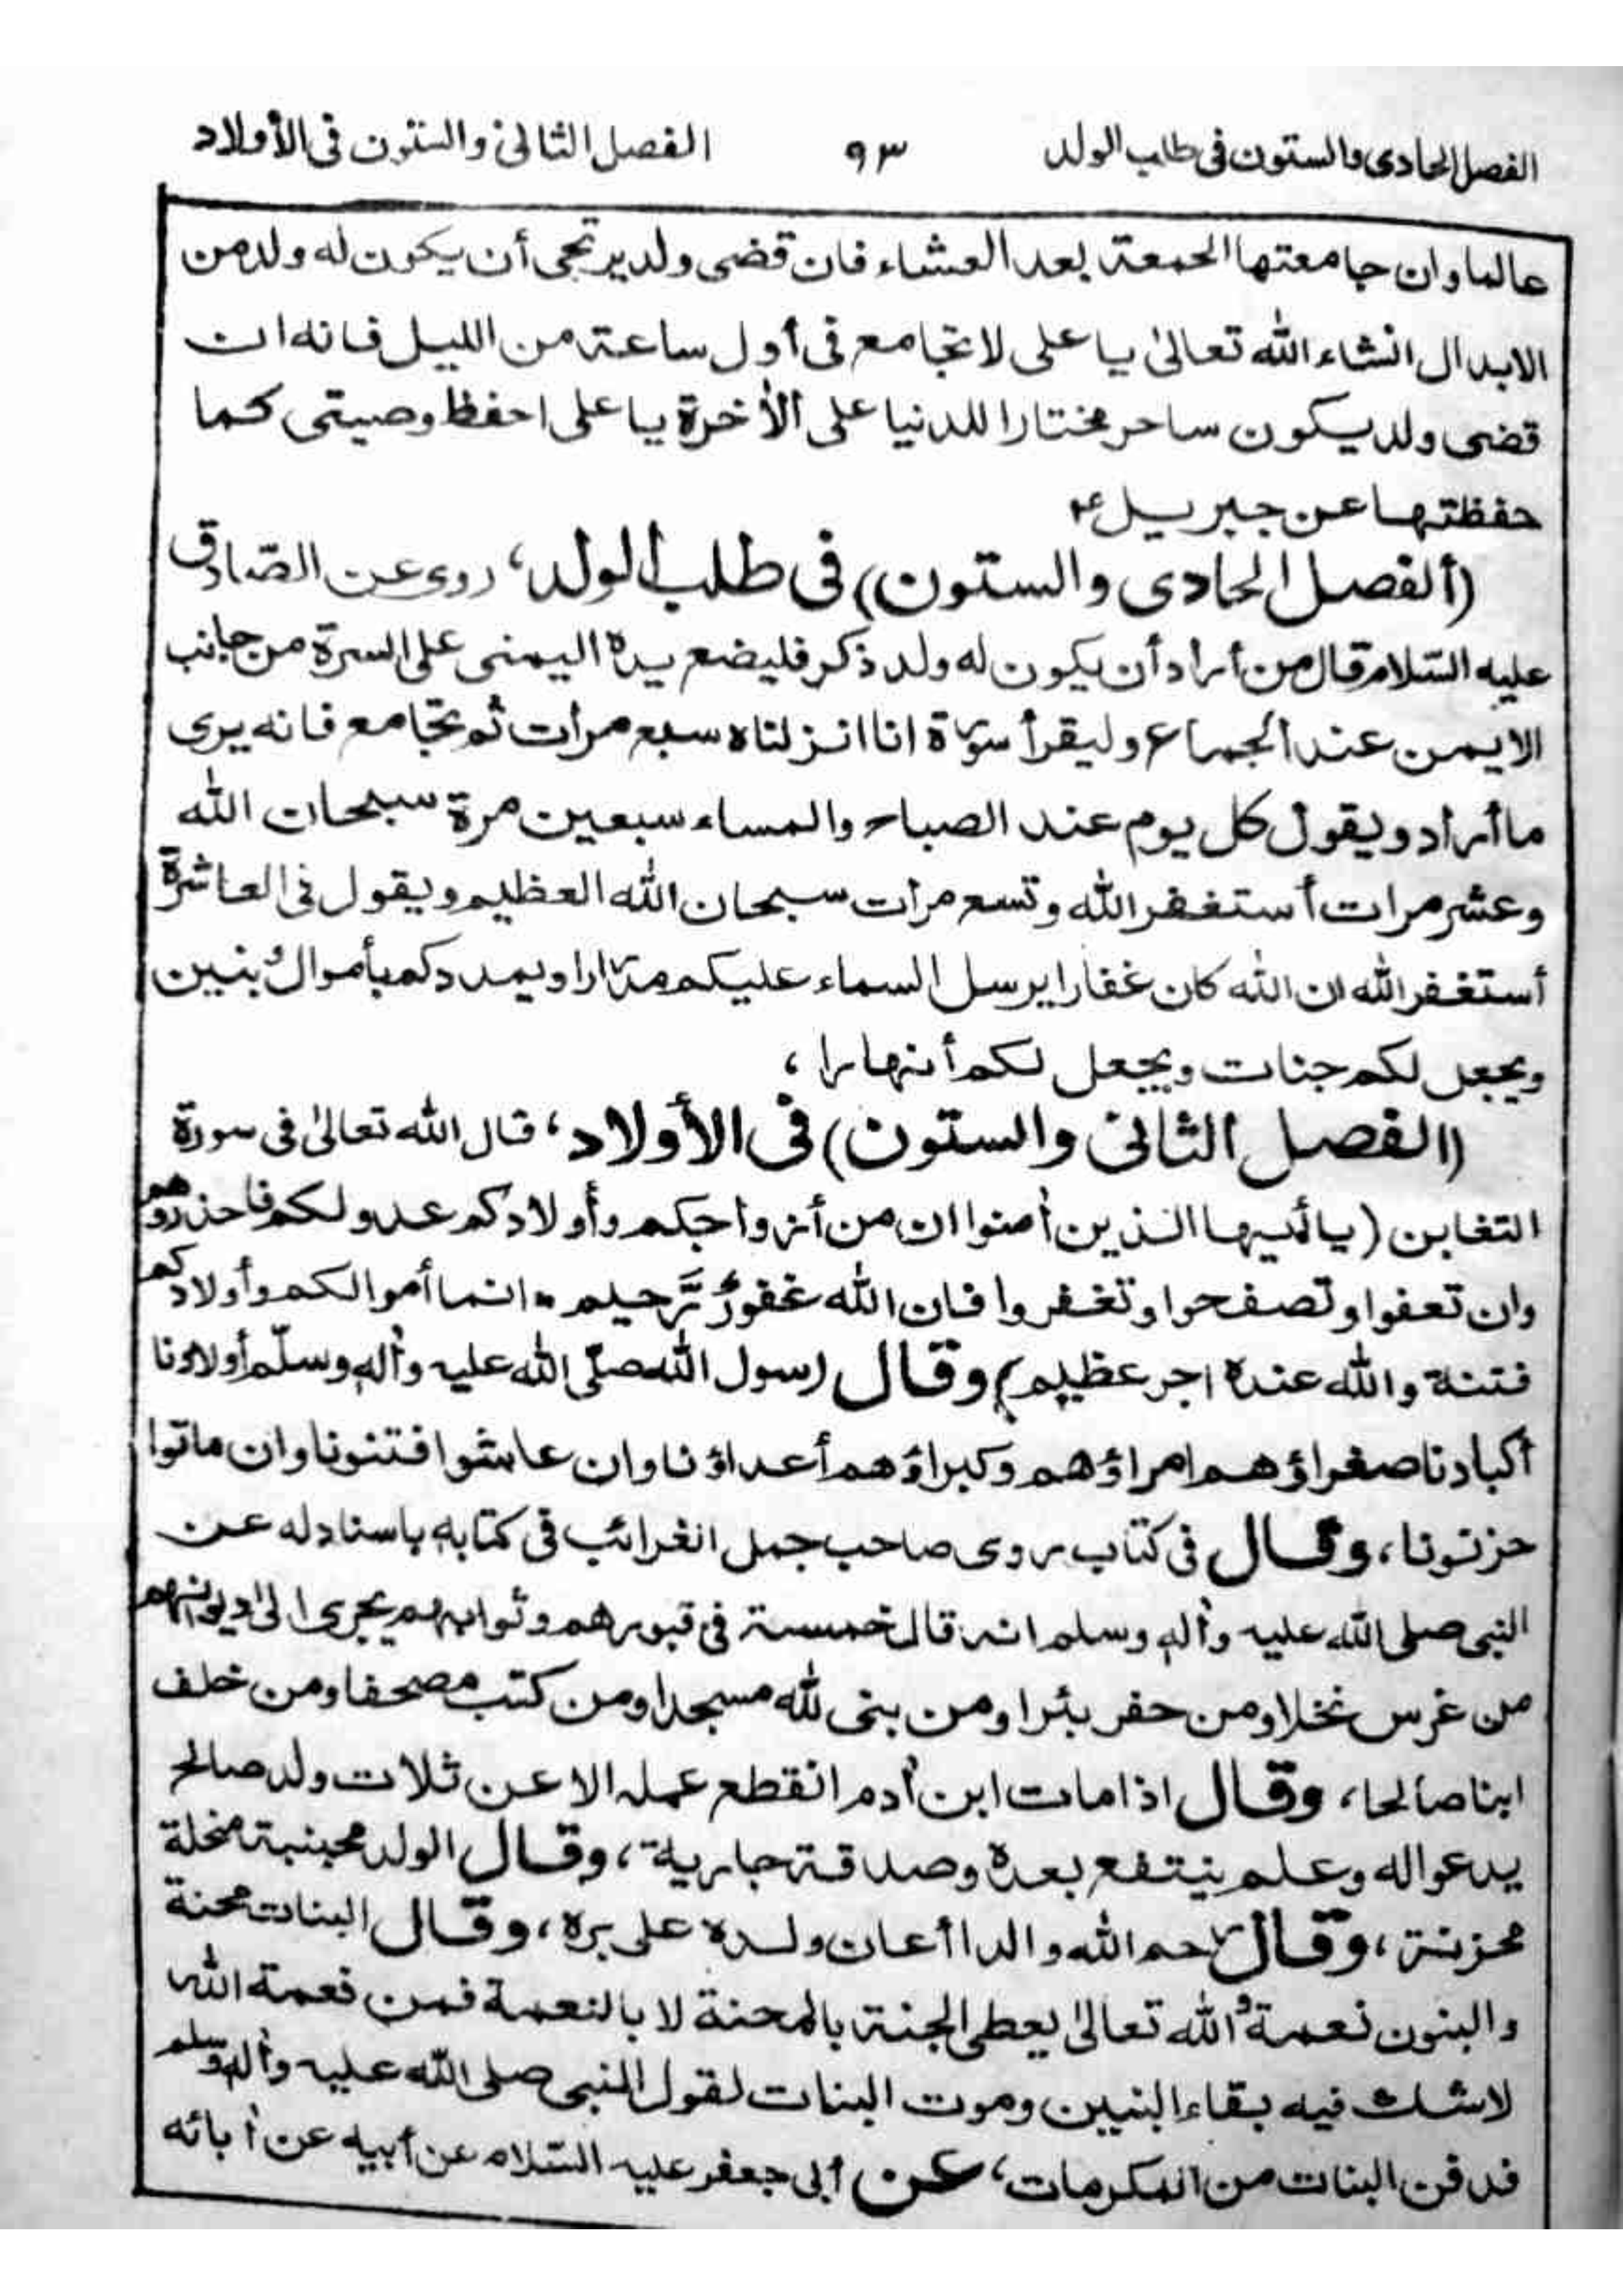 الفصل الحادى والستون فى طلب الولد ٩٣ الفصل الثانى والستون فى الأولاد
عالما وان جامعتها الجمعة بعد العشاء فان قضى ولد يرتجى أن يكون له ولد من
الابدال انشاء الله تعالىٰ يا على لا تجامع فى أول ساعة من الليل فانه ان
قضى ولد يكون ساحر مختارا للدنيا على الأخرة يا على احفظ وصيتى كما
حفظتها عن جبريل ع
(ألفصل الحادى والستون) فى طلب الولد، روى عن الصّادق
عليه السّلام قال من أراد أن يكون له ولد ذكر فليضع يده اليمنى على السرة من جانب
الايمن عند الجماع وليقرأ سورة انا انزلناه سبع مرات ثم تجامع فانه يرى
ما أراد ويقول كل يوم عند الصباح والمساء سبعين مرة سبحان الله
وعشر مرات أستغفر الله وتسع مرات سبحان الله العظيم ويقول فى العاشرة
أستغفر الله ان الله كان غفارا يرسل السماء عليكم مدرارا ويمددكم بأموال وبنين
ويجعل لكم جنات ويجعل لكم أنهارا ،
(الفصل الثانى والستون) فى الأولاد، قال الله تعالىٰ فى سورة
التغابن (يا أيها الذين أمنوا ان من أزواجكم وأولادكم عدو لكم فاحذروهم
وان تعفوا وتصفحوا وتغفروا فان الله غفورٌ رَّحيم ـ انما أموالكم وأولادكم
فتنة والله عنده اجر عظيم) وقال رسول الله صلّى الله عليه وأله وسلّم أولادنا
أكبادنا صغراؤهم امراؤهم وكبراؤهم أعداؤنا وان عاشوا فتنونا وان ماتوا
حزنونا، وقال فى كتاب روى صاحب جمل الغرائب فى كتابه باسناد له عن
النبى صلى الله عليه وأله وسلم انه قال خمسة فى قبورهم وثوابهم يجرى الىٰ ديوانهم
من غرس نخلا ومن حفر بئرا ومن بنى لله مسجدا ومن كتب مصحفا ومن خلف
ابنا صالحا، وقال اذا مات ابن أدم انقطع عمله الا عن ثلاث ولد صالح
يدعو اله وعلم ينتفع بعده وصدقة جارية، وقال الولد مجبنبة منخلة
محزنة، وقال رحم الله والدا أعان ولده على بره، وقال البنات محنة
والبنون نعمة والله تعالىٰ يعطى الجنة بالمحنة لا بالنعمة فمن نعمة الله
لا شك فيه بقاء البنين وموت البنات لقول النبى صلى الله عليه وأله وسلم
فدفن البنات من المكرمات، عن أبى جعفر عليه السّلام عن أبيه عن أبائه